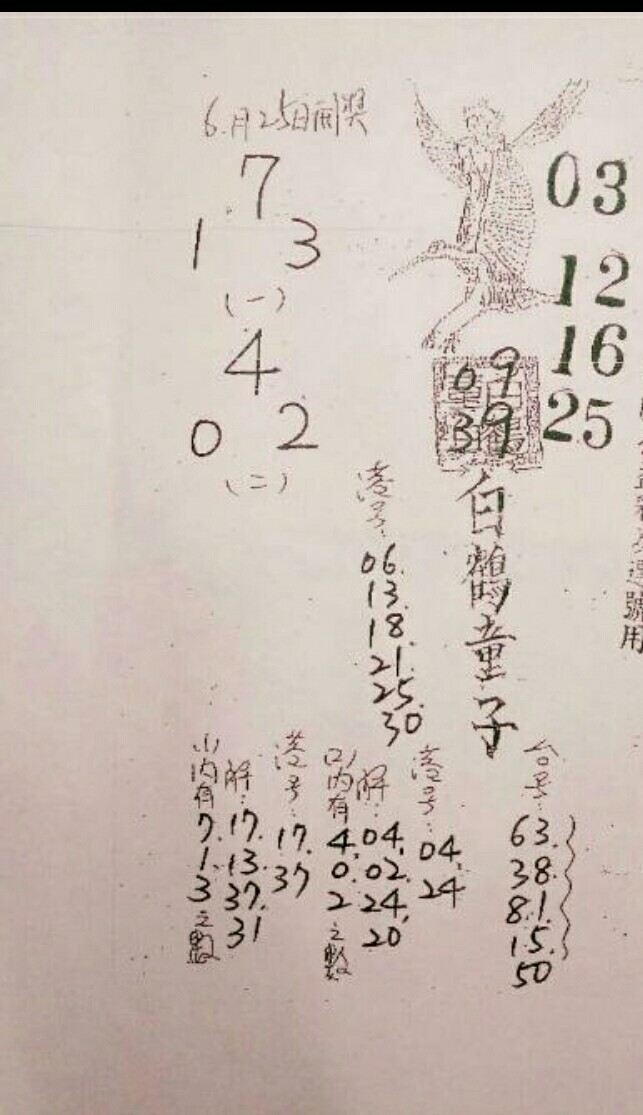 6月25日開獎
7
1 3
(一)
4
0 2
(二)
03
12
16
25
09
39
白鶴童子
港号:
06.
13.
18.
21.
25.
30
台号:
63.
38.
81.
15.
50
港号:
04,
24
解:
04,
02.
24,
20
(2)內有
4,
0.
2
之數
港号:
17.
37
解:
17.
13.
37.
31
(1)內有
7.
1.
3
之數
選號用